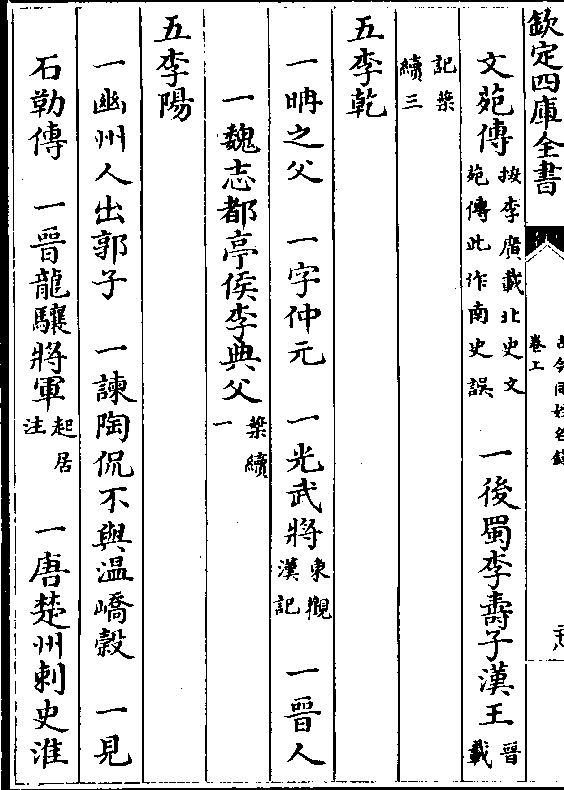 欽定四庫全書
卷上
古今同姓名錄
文苑傳按李廣載北史文苑傳此作南史誤 一後蜀李壽子漢王晉載
記桀續三
五李乾
一晒之父 一字仲元 一光武將東觀漢記 一晉人
一魏志都亭侯李典父桀續一
五李陽
一幽州人出郭子 一諫陶侃不與温嶠穀 一見
石勒傳 一晉龍驤將軍起居注 一唐楚州刺史淮